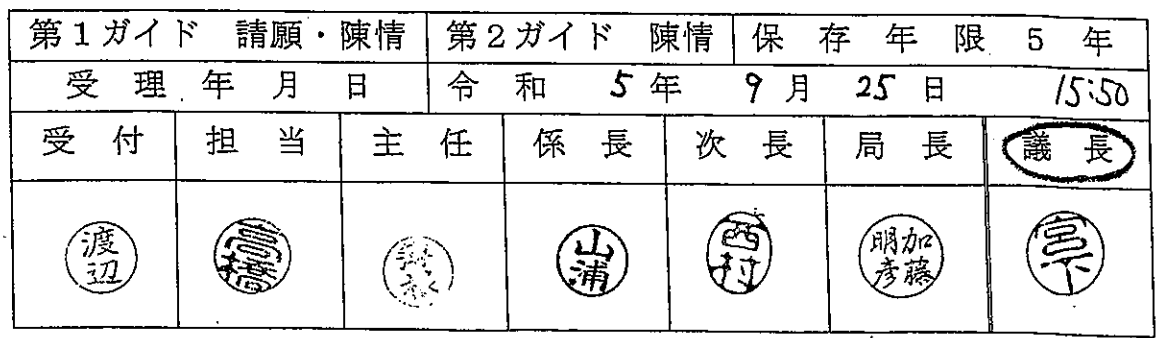 第1ガイド 請願・陳情 第2ガイド 陳情 保存年限 5年
受理年月日 令和 5年 9月 25日 15:50
受付 担当 主任 係長 次長 局長 議長
渡辺 高橋 山浦 西村 加藤明彦 宮下